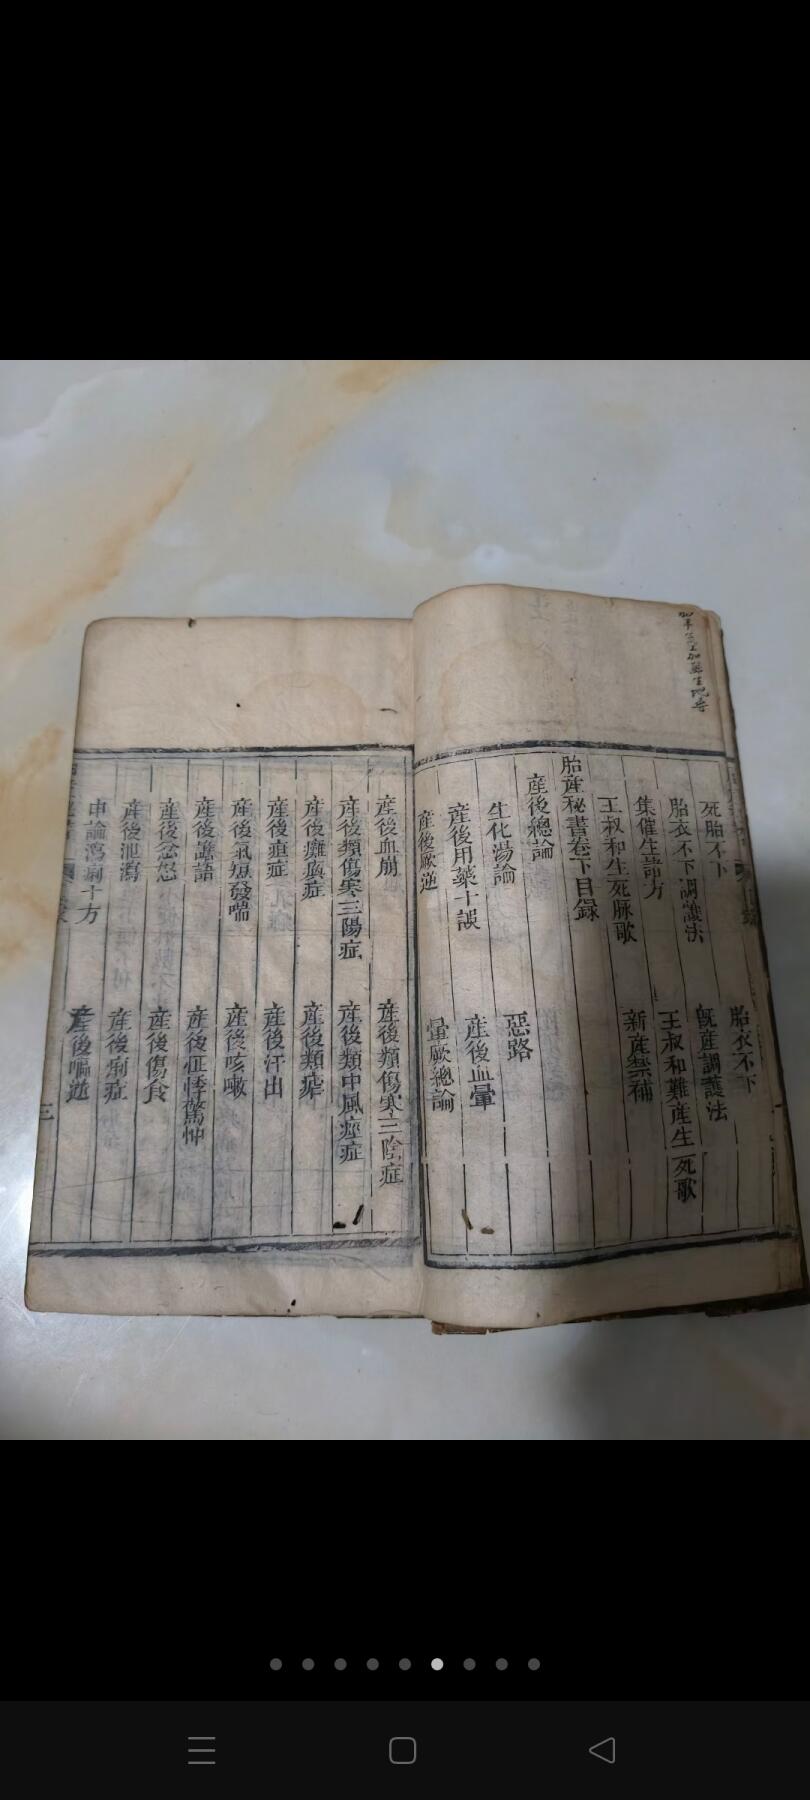 死胎不下
胎衣不下
胎衣不下調護法
既産調護法
集催生諸方
王叔和難産生死歌
王叔和生死脉歌
新産禁補
胎産秘書卷下目録
産後總論
惡路
生化湯論
産後血暈
産後用藥十誤
暈厥總論
産後厥逆
産後血崩
産後類傷寒三陰症
産後類傷寒三陽症
産後類中風痙症
産後癱瘓症
産後類瘧
産後疸症
産後汗出
産後氣短發喘
産後咳嗽
産後譫語
産後怔悸驚忡
産後忿怒
産後傷食
産後泄瀉
産後痢症
申論瀉痢十方
産後嘔逆
三